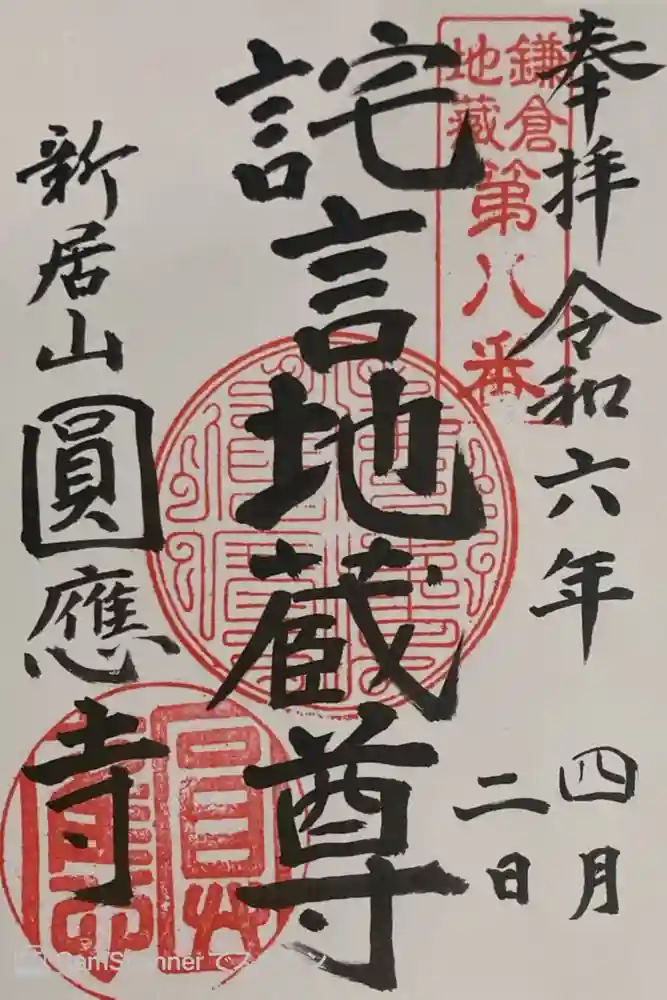 奉拝 令和六年
四月
二日
鎌倉
地蔵
第八番
詫言地蔵尊
新居山 圓應寺
CamScanner でス